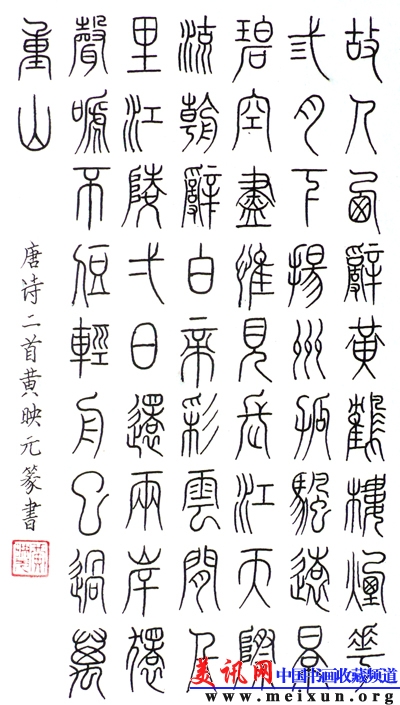 故人西辭黃鶴樓煙花
弎月下揚州孤颿遠景
碧空盡惟見長江天際
流朝辭白帝彩雲間千
里江陵弌日還兩岸猿
聲嗁不住輕舟已過萬
重山
唐诗二首黄映元篆書
美讯网 中国书画收藏频道
www.meixun.org